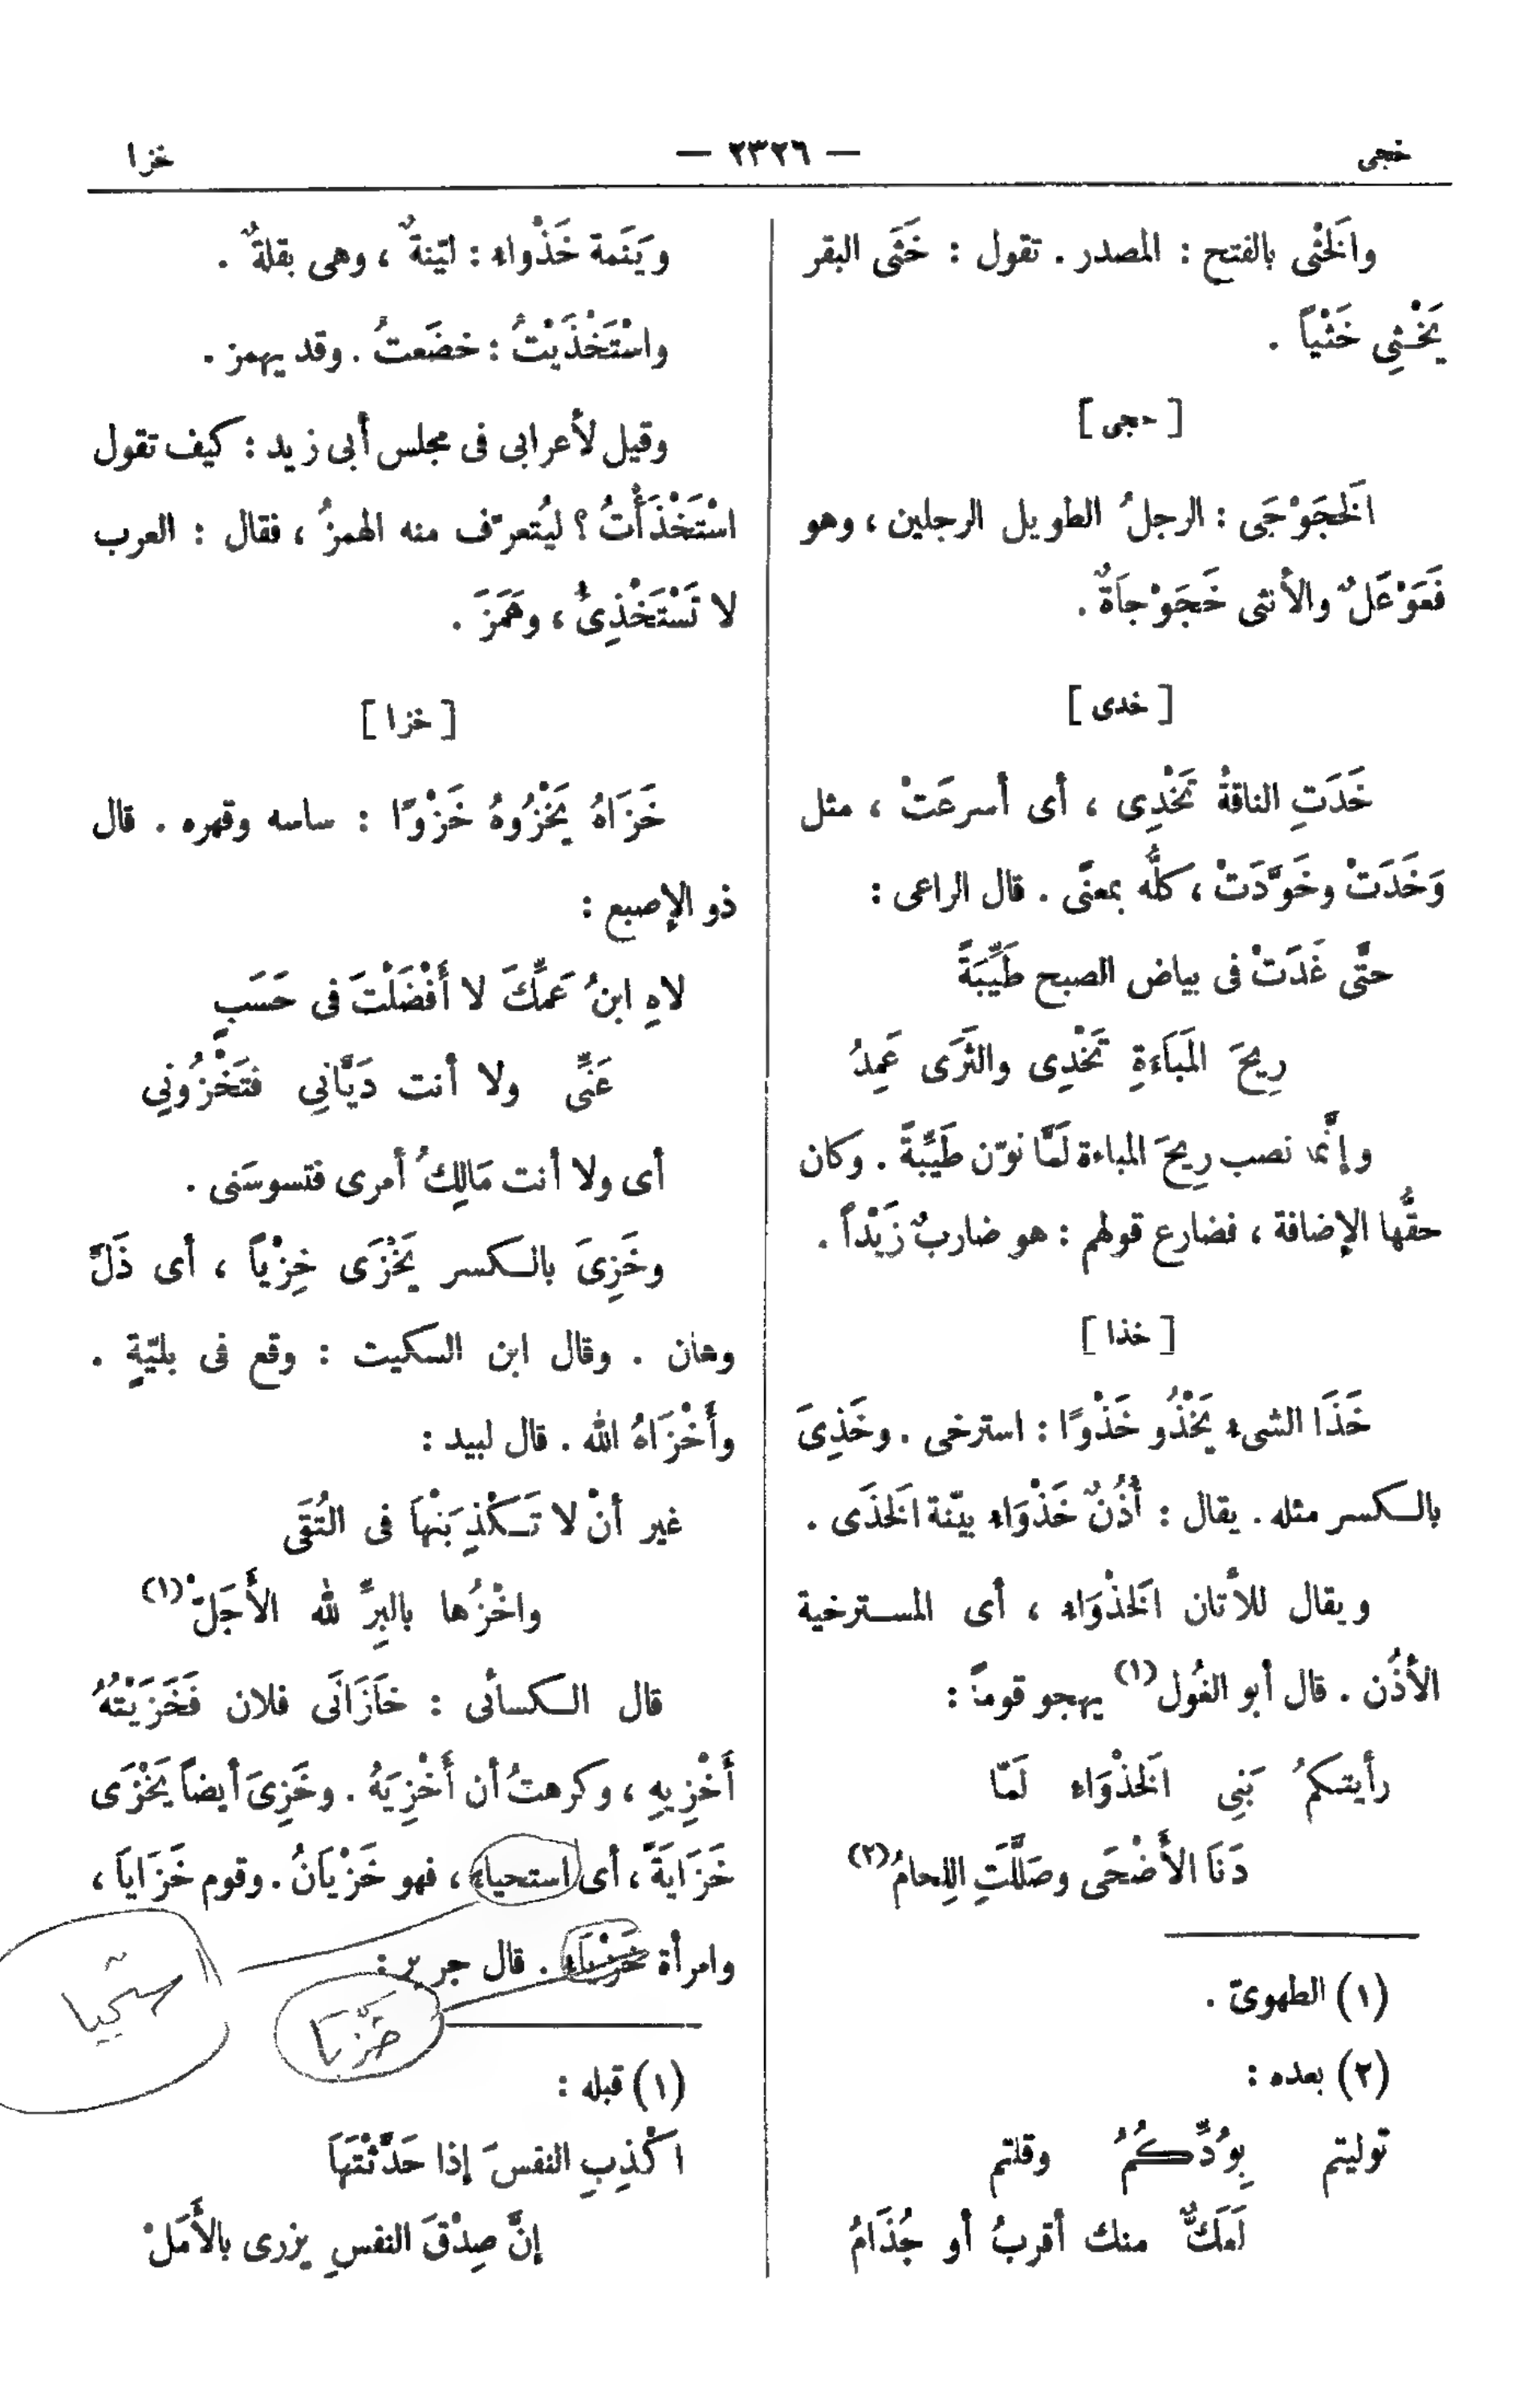 خجى
— ٢٣٢٦ —
خزا
والَخْثى بالفتح : المصدر . تقول : خَثَى البقر
يَخْثِي خَثْياً .
[ خجى ]
الَخجَوْجَى : الرجلُ الطويل الرجلين ، وهو
فَعَوْعَلٌ والأنثى خَجَوْجاَةٌ .
[ خدى ]
خَدَتِ الناقةُ تَخْدِى ، أى أسرعَتْ ، مثل
وَخَدَتْ وخَوَّدَتْ ، كلُّه بمعنًى . قال الراعى :
حتَّى غَدَتْ فى بياض الصبح طَيِّبَةً
رِيحَ المَبَاَءَةِ تَخْدِى والثَرَى عَمِدُ
وإنَّما نصب رِيحَ المباءة لَمَّا نوّن طَيِّبةً . وكان
حقُّها الإضافة ، فضارع قولهم : هو ضاربٌ زَيْداً .
[ خذا ]
خَذَا الشىء يَخْذُو خَذْوًا : استرخى . وخَذِىَ
بالكسر مثله . يقال : أُذُنٌ خَذْوَاء بيّنة الَخذَى .
ويقال للأتان الَخذْوَاء ، أى المسترخية
الأذُن . قال أبو الغُول (١) يهجو قوماً :
رأيتكمُ بَنِى الَخذْوَاءِ لَمّا
دَنَا الأَضْحَى وصَلَّلَتِ اللِحامُ (٢)
(١) الطهوىّ .
(٢) بعده :
توليتم بِوُدِّكُمُ وقلتم
لَعَكٌّ منك أقربُ أو جُذَامُ
ويَنَمة خَذْواء : ليّنةٌ ، وهى بقلةٌ .
واسْتَخْذَيْتُ : خضَعتُ . وقد يهمز .
وقيل لأعرابى فى مجلس أبى زيد : كيف تقول
اسْتَخْذَأْتُ ؟ ليُتعرّف منه الهمزُ ، فقال : العرب
لا تَسْتَخْذِىُٔ ، وهَمَزَ .
[ خزا ]
خَزَاهُ يَخْزُوهُ خَزْوًا : ساسه وقهره . قال
ذو الإصبع :
لاهِ ابنُ عَمِّكَ لا أَفْضَلْتَ فى حَسَبٍ
عَنِّى ولا أنت دَيَّانِى فتَخْزُونِى
أى ولا أنت مَالِكُ أمرى فتسوسَنى .
وخَزِىَ بالكسر يَخْزَى خِزْياً ، أى ذَلَّ
وهان . وقال ابن السكيت : وقع فى بليّةٍ .
وأَخْزَاهُ الله . قال لبيد :
غير أنْ لا تَكْذِبَنْهاَ فى التُقَى
واخْزُها بالبِرِّ لله الأَجَلّْ (١)
قال الكسائى : خاَزَانَى فلان فَخَزَيْتُهُ
أَخْزِيهِ ، وكرهتُ أن أَخْزِيَهُ . وخَزِىَ أيضاً يَخْزَى
خَزَايَةً ، أى استحياء ، فهو خَزْيَانُ . وقوم خَزَاياَ ،
وامرأة خَزْيَاء . قال جرير :
ستحيا
خَزْيَا
(١) قبله :
اكْذِبِ النفسَ إذا حَدَّثْتَهَاَ
إنَّ صِدْقَ النفسِ يزرى بالأَمَلْ